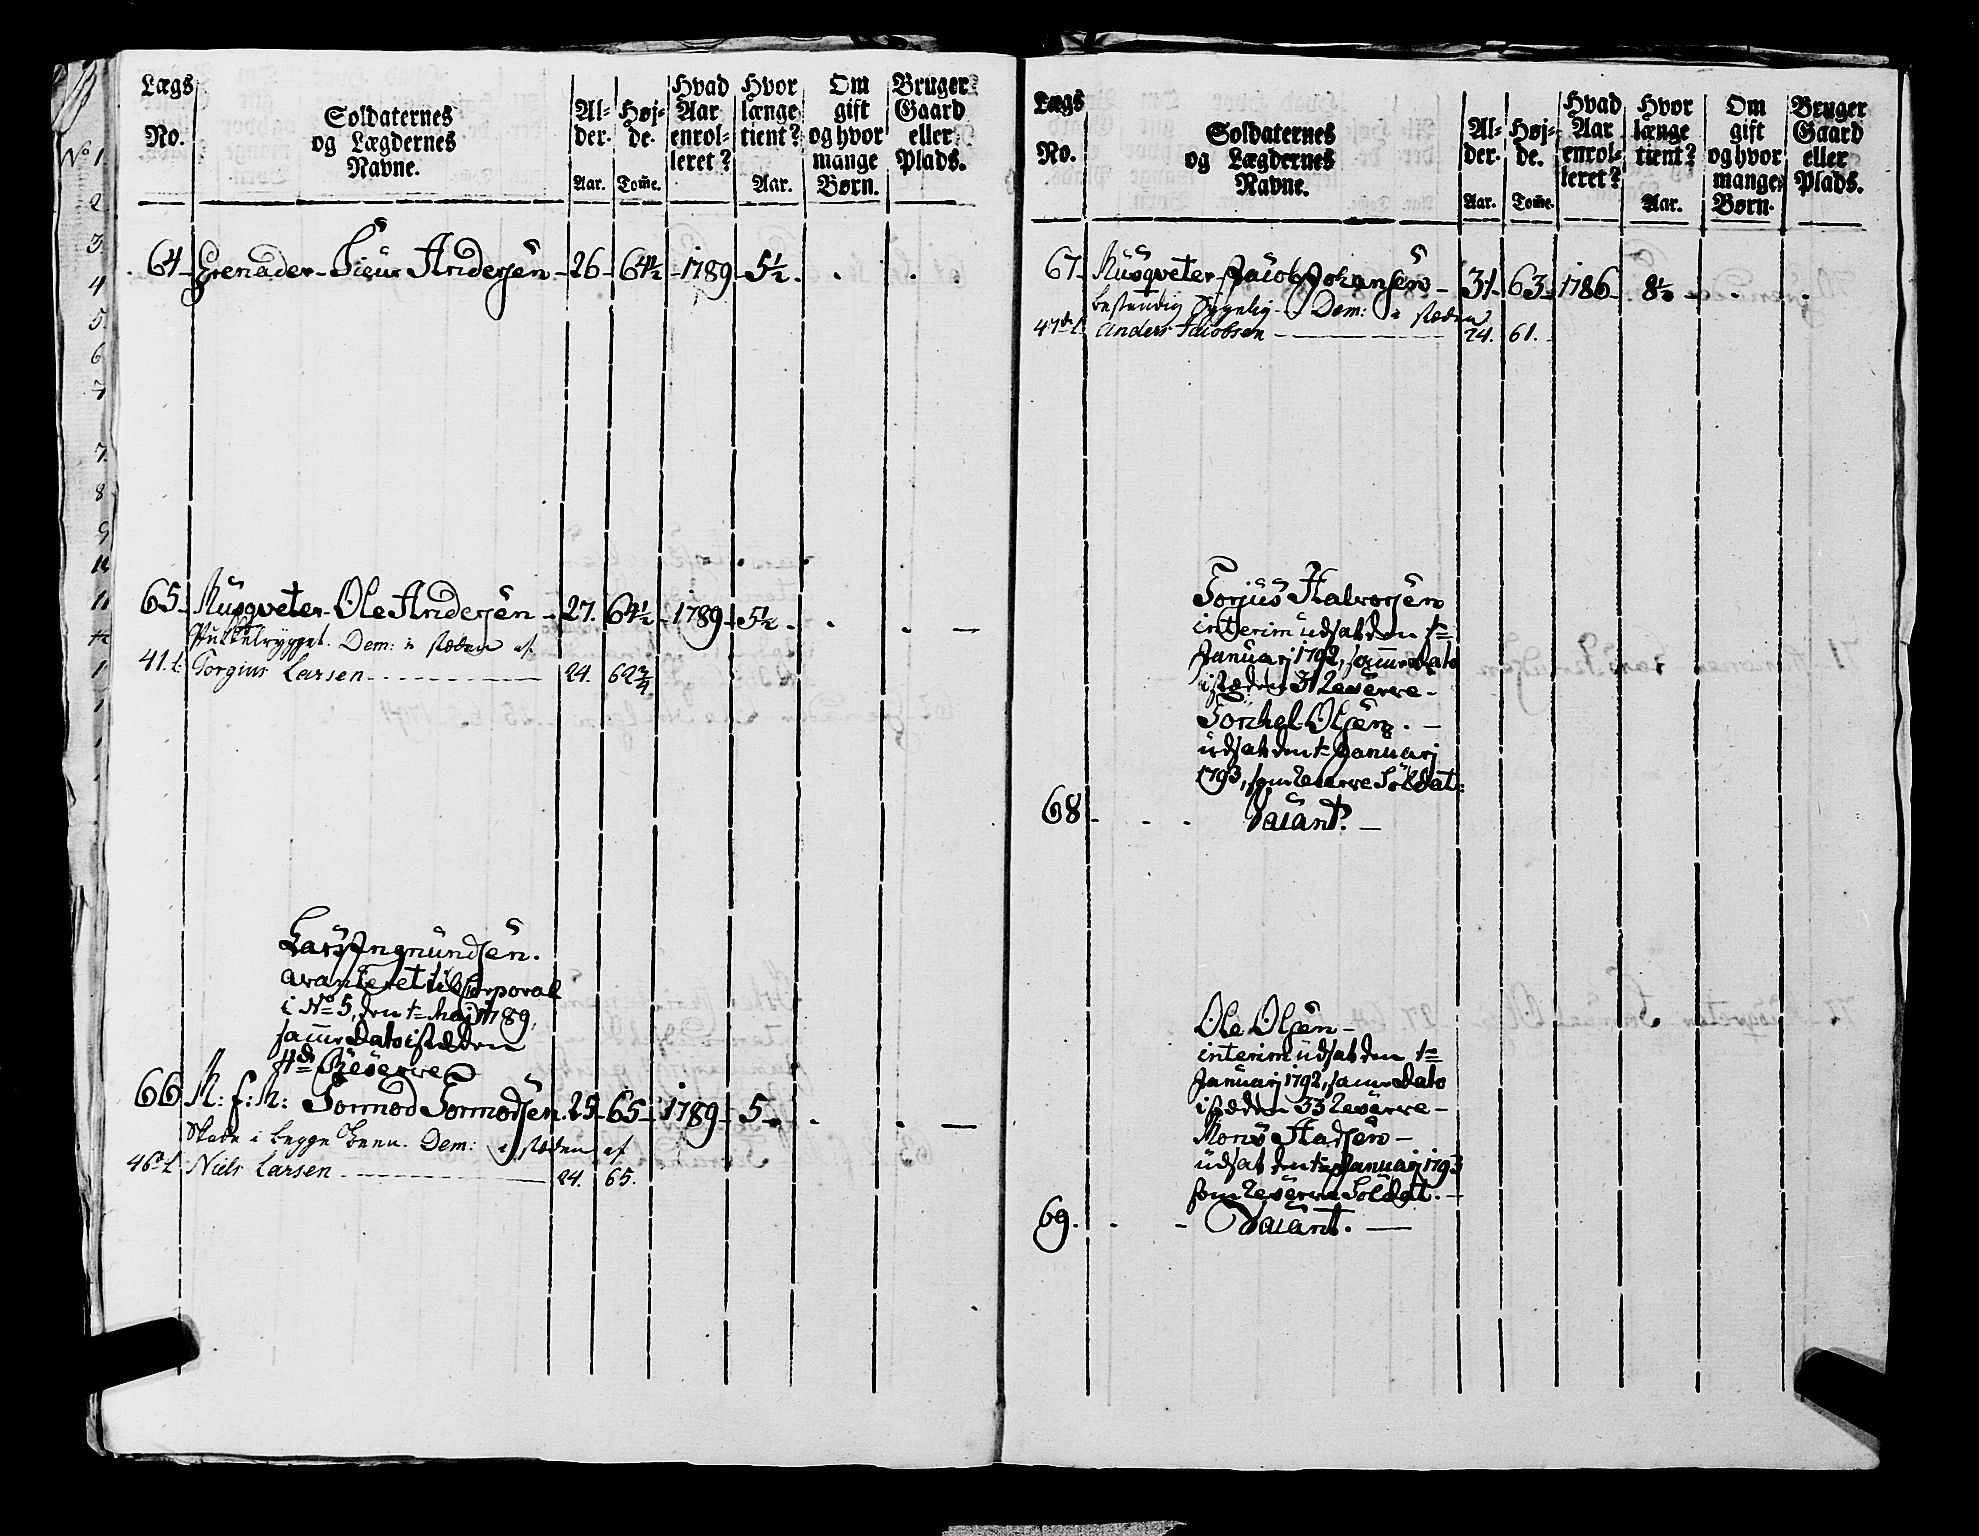 Lægs No. Soldaternes og Lægdernes Navne. Al-der. Aar. Høj-de. Tom̄e. Hvad Aar enrol-leret? Hvor længe tient? Aar. Om gift og hvor mange Børn. Bruger Gaard eller Plads.
No 1
2
3
4
5
6
7
7
8
9
64 Grenader Siur Andersen 26 64½ 1789 5½
65 Musqveter Ole Andersen 27. 64½ 1789 5½
Pukkelrygget. Dem: i stæden af
41. t. Torgius Larsen 24. 62¾
Lars Ingmundsen.
avanceret til Corporal
i No 5, den 1te Maj 1789,
samme Dato i stæden
4de Reserve
66 M: f: M: Tormod Tormodsen 25 65 1789 5
Skade i begge Been. Dem: i stæden af
46. t. Niels Larsen 24. 65.
Lægs No. Soldaternes og Lægdernes Navne. Al-der. Aar. Høj-de. Tom̄e. Hvad Aar enrol-leret? Hvor længe tient? Aar. Om gift og hvor mange Børn. Bruger Gaard eller Plads.
67 Musqveter Jacob Johansen 31 63 1786 8½
bestendig sygelig. Dem: i stæden
47de t. Anders Jacobsen 24. 61.
Torjus Halvorsen
interim udsat den 1te
Januarj 1792, samme Dato
i stæden 31 Reserve
Torkel Olsen.
udsat den 1te Januarj
1793, som Reserve Soldat:
68 Vacant.
Ole Olsen
interim udsat den 1te
Januarj 1792, samme Dato
i stæden 33 Reserve
Mons
udsat den 1te Januarj 1793
som Reserve Soldat.
69. Vacant.